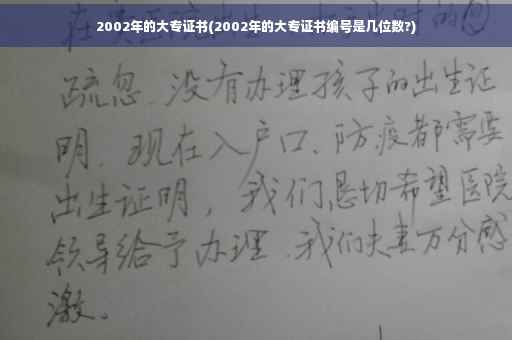 2002年的大专证书(2002年的大专证书编号是几位数?)
疏忽、没有办理孩子的出生证
明、现在入户口、防疫都需要
出生证明，我们恳切希望医院
领导给予办理、我们夫妻万分感
激。